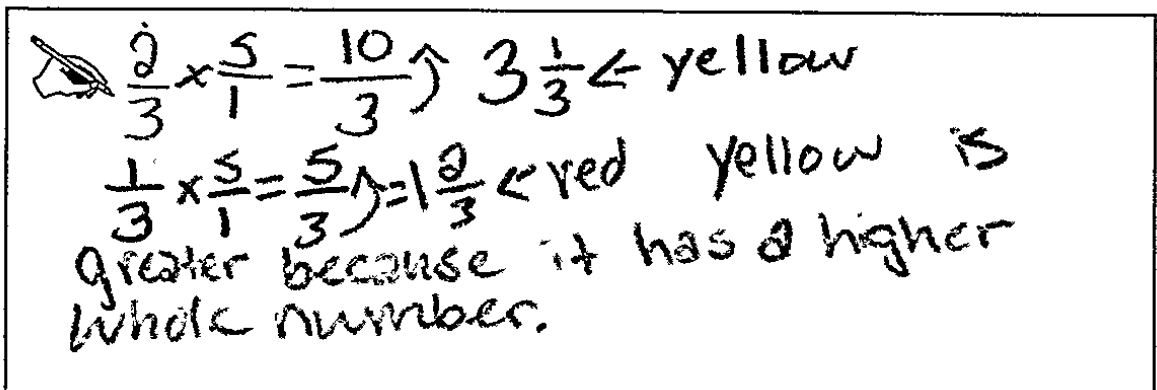 2/3 × 5/1 = 10/3 ⤴ 3 1/3 ← yellow
1/3 × 5/1 = 5/3 ⤴ = 1 2/3 ← red yellow is
greater because it has a higher
whole number.